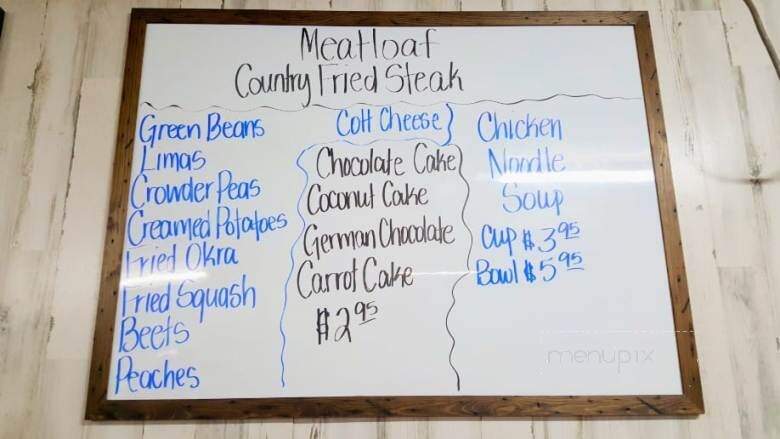 Meatloaf
Country Fried Steak
Green Beans
Limas
Crowder Peas
Creamed Potatoes
Fried Okra
Fried Squash
Beets
Peaches
Cott Cheese
Chocolate Cake
Coconut Cake
German Chocolate
Carrot Cake
$2.95
Chicken
Noodle
Soup
Cup $3.95
Bowl $5.95
menupix